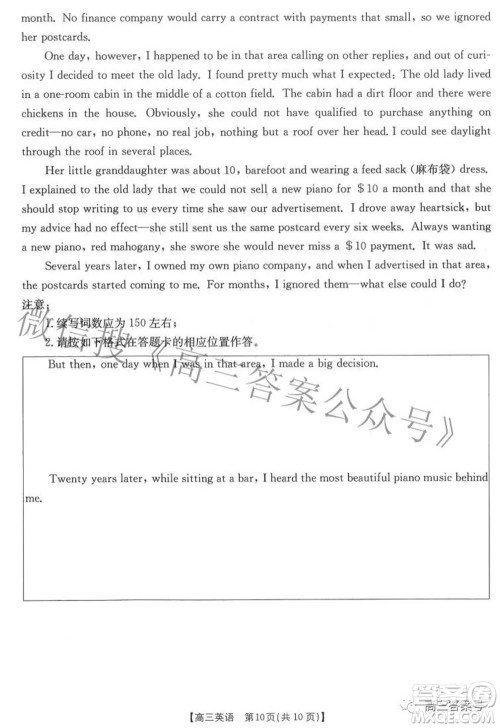 month. No finance company would carry a contract with payments that small, so we ignored
her postcards.
One day, however, I happened to be in that area calling on other replies, and out of curi-
osity I decided to meet the old lady. I found pretty much what I expected: The old lady lived
in a one-room cabin in the middle of a cotton field. The cabin had a dirt floor and there were
chickens in the house. Obviously, she could not have qualified to purchase anything on
credit—no car, no phone, no real job, nothing but a roof over her head. I could see daylight
through the roof in several places.
Her little granddaughter was about 10, barefoot and wearing a feed sack (麻布袋) dress.
I explained to the old lady that we could not sell a new piano for $10 a month and that she
should stop writing to us every time she saw our advertisement. I drove away heartsick, but
my advice had no effect—she still sent us the same postcard every six weeks. Always wanting
a new piano, red mahogany, she swore she would never miss a $10 payment. It was sad.
Several years later, I owned my own piano company, and when I advertised in that area,
the postcards started coming to me. For months, I ignored them—what else could I do?
注意:
1. 续写词数应为 150 左右;
2. 请按如下格式在答题卡的相应位置作答。
But then, one day when I was in that area, I made a big decision.
Twenty years later, while sitting at a bar, I heard the most beautiful piano music behind
me.
微信搜《高三答案公众号》
【高三英语 第10页(共10页)】
高三答案号